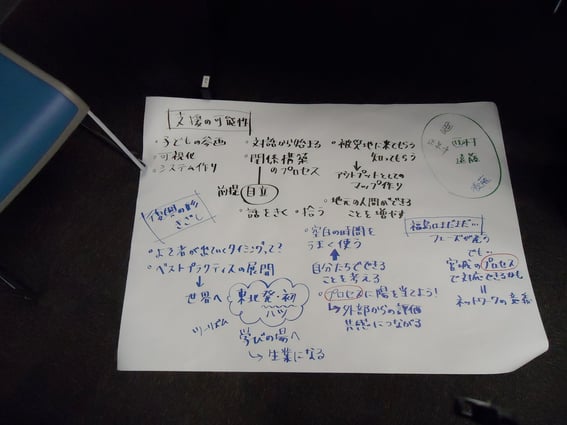 支援の可能性
・子どもの参画
・可視化
・システム作り
・対話から始まる
・関係構築
のプロセス
前提 自立
・話をきく ・拾う
・被災地に来てもらう
知ってもらう
アウトプットとしての
マップ作り
・地元の人間ができる
ことを増やす
・空白の時間を
うまく使う
自分たちでできる
ことを考える
・プロセスに陽を当てよう!
外部からの評価
共感につながる
遠藤
復興の
きざし
・よそ者が出ていくタイミングって?
・ベストプラクティスの展開
世界へ
東北発・初
ツーリズム
学びの場へ
生業になる
福島はまだまだ…
フェーズが違う
でも…
宮城のプロセス
で対応できるかも
=
ネットワークの意義